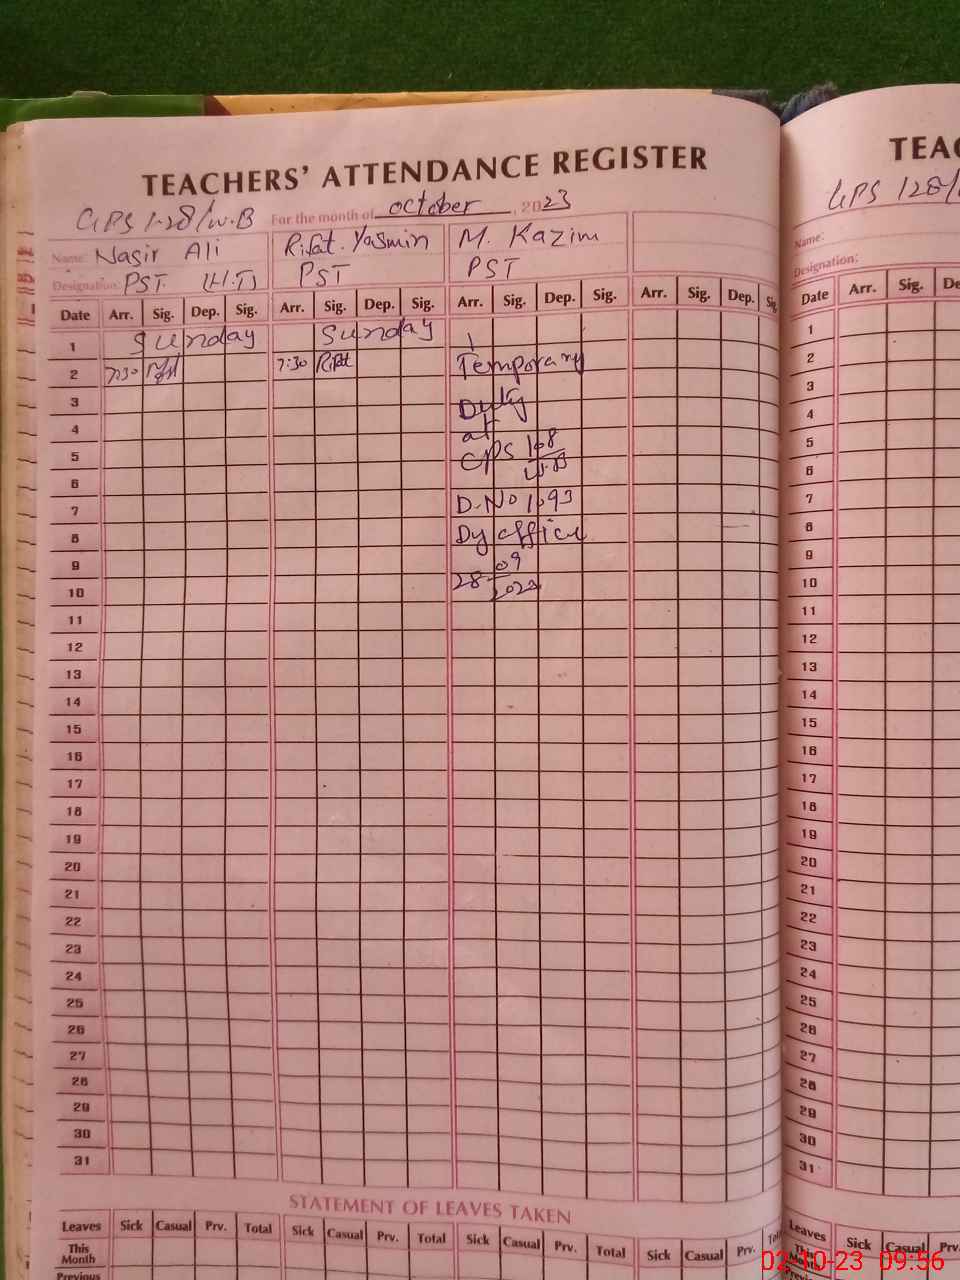 TEACHERS' ATTENDANCE REGISTER
GPS 128/W.B For the month of October, 2023
Name: Nasir Ali Rifat Yasmin M. Kazim
Designation: PST (H.T) PST PST
Date Arr. Sig. Dep. Sig. Arr. Sig. Dep. Sig. Arr. Sig. Dep. Sig. Arr. Sig. Dep. Sig.
1 Sunday Sunday
2 7:30 7:30 Rifat Temporary
3 Duty
4 at
5 GPS 108/W.B
6
7 D.No 1093
8 Dy office
9
10 28-09-2023
11
12
13
14
15
16
17
18
19
20
21
22
23
24
25
26
27
28
29
30
31
STATEMENT OF LEAVES TAKEN
Leaves Sick Casual Prv. Total Sick Casual Prv. Total Sick Casual Prv. Total Sick Casual Prv.
This Month
Previous
TEAC
GPS 128/
Name:
Designation:
Date Arr. Sig. De
1
2
3
4
5
6
7
8
9
10
11
12
13
14
15
16
17
18
19
20
21
22
23
24
25
26
27
28
29
30
31
Leaves Sick Casual Prv
This Month
02-10-23 09:56